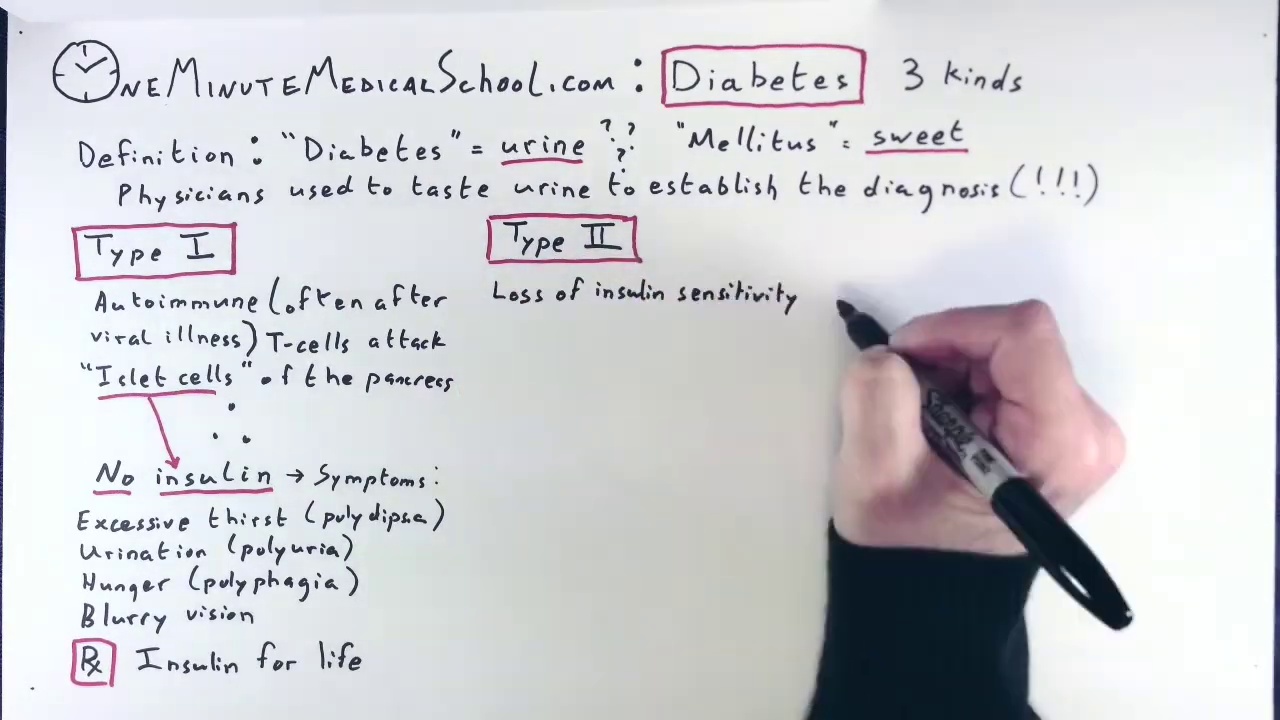 OneMinuteMedicalSchool.com: Diabetes 3 kinds
Definition: "Diabetes" = urine ??? "Mellitus" = sweet
Physicians used to taste urine to establish the diagnosis (!!!)
Type I
Autoimmune (often after
viral illness) T-cells attack
"Islet cells" of the pancreas
∴
No insulin → Symptoms:
Excessive thirst (polydipsia)
Urination (polyuria)
Hunger (polyphagia)
Blurry vision
Rx Insulin for life
Type II
Loss of insulin sensitivity